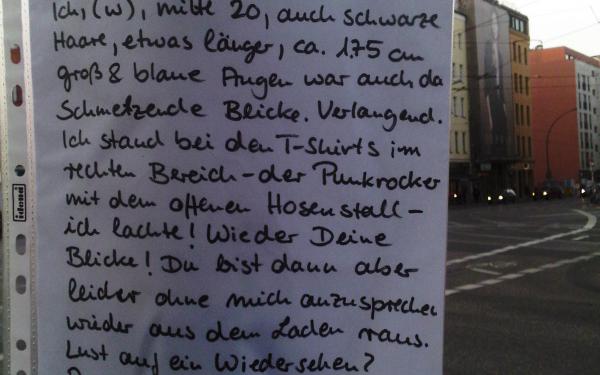 Ich, (w), mitte 20, auch schwarze
Haare, etwas länger, ca. 1.75 cm
groß & blaue Augen war auch da
Schmetzende Blicke. Verlangend.
Ich stand bei den T-Shirts im
rechten Bereich - der Punkrocker
mit dem offenen Hosenstall -
ich lachte! Wieder Deine
Blicke! Du bist dann aber
leider ohne mich anzusprechen
wieder aus dem Laden raus.
Lust auf ein Wiedersehen?
idena